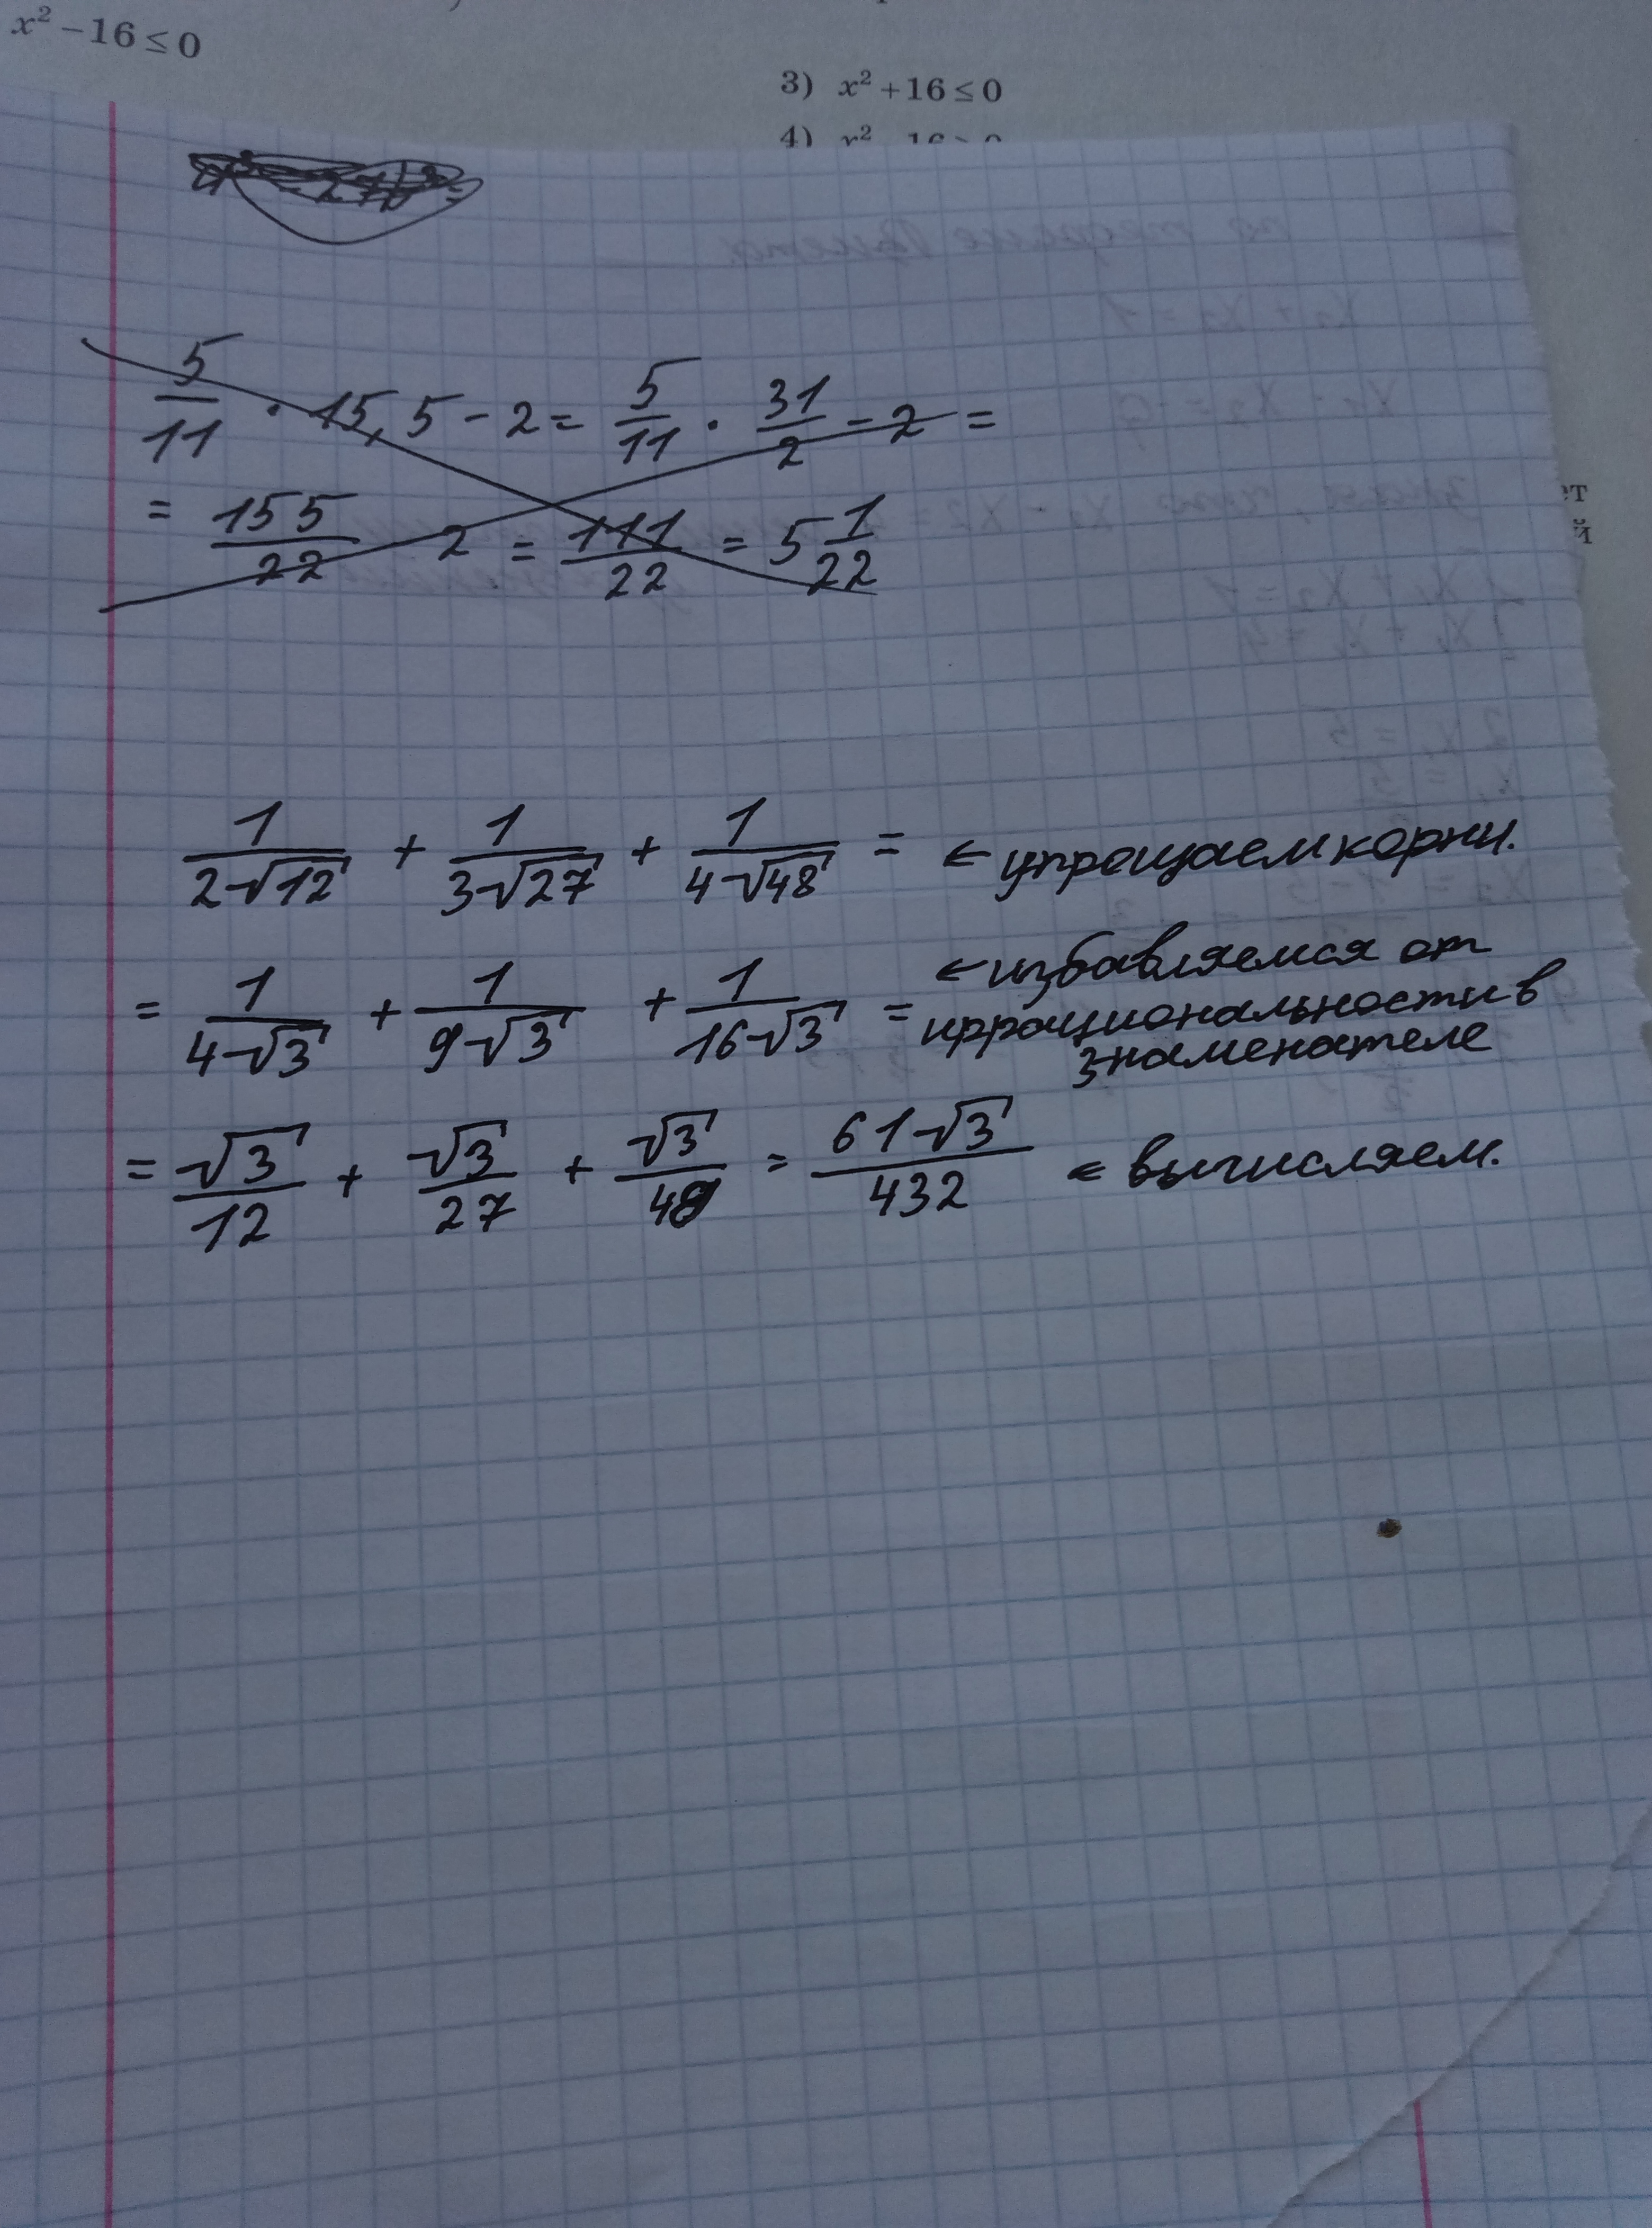 x² – 16 ≤ 0
3) x² + 16 ≤ 0
4) x²
5/11 · 15,5 - 2 = 5/11 · 31/2 - 2 =
= 155/22 - 2 = 111/22 = 5 1/22
1/(2√12) + 1/(3√27) + 1/(4√48) = ← упрощаем корни.
= 1/(4√3) + 1/(9√3) + 1/(16√3) = ← избавляемся от
иррациональности в
знаменателе
= √3/12 + √3/27 + √3/48 = 61√3/432 ← вычисляем.